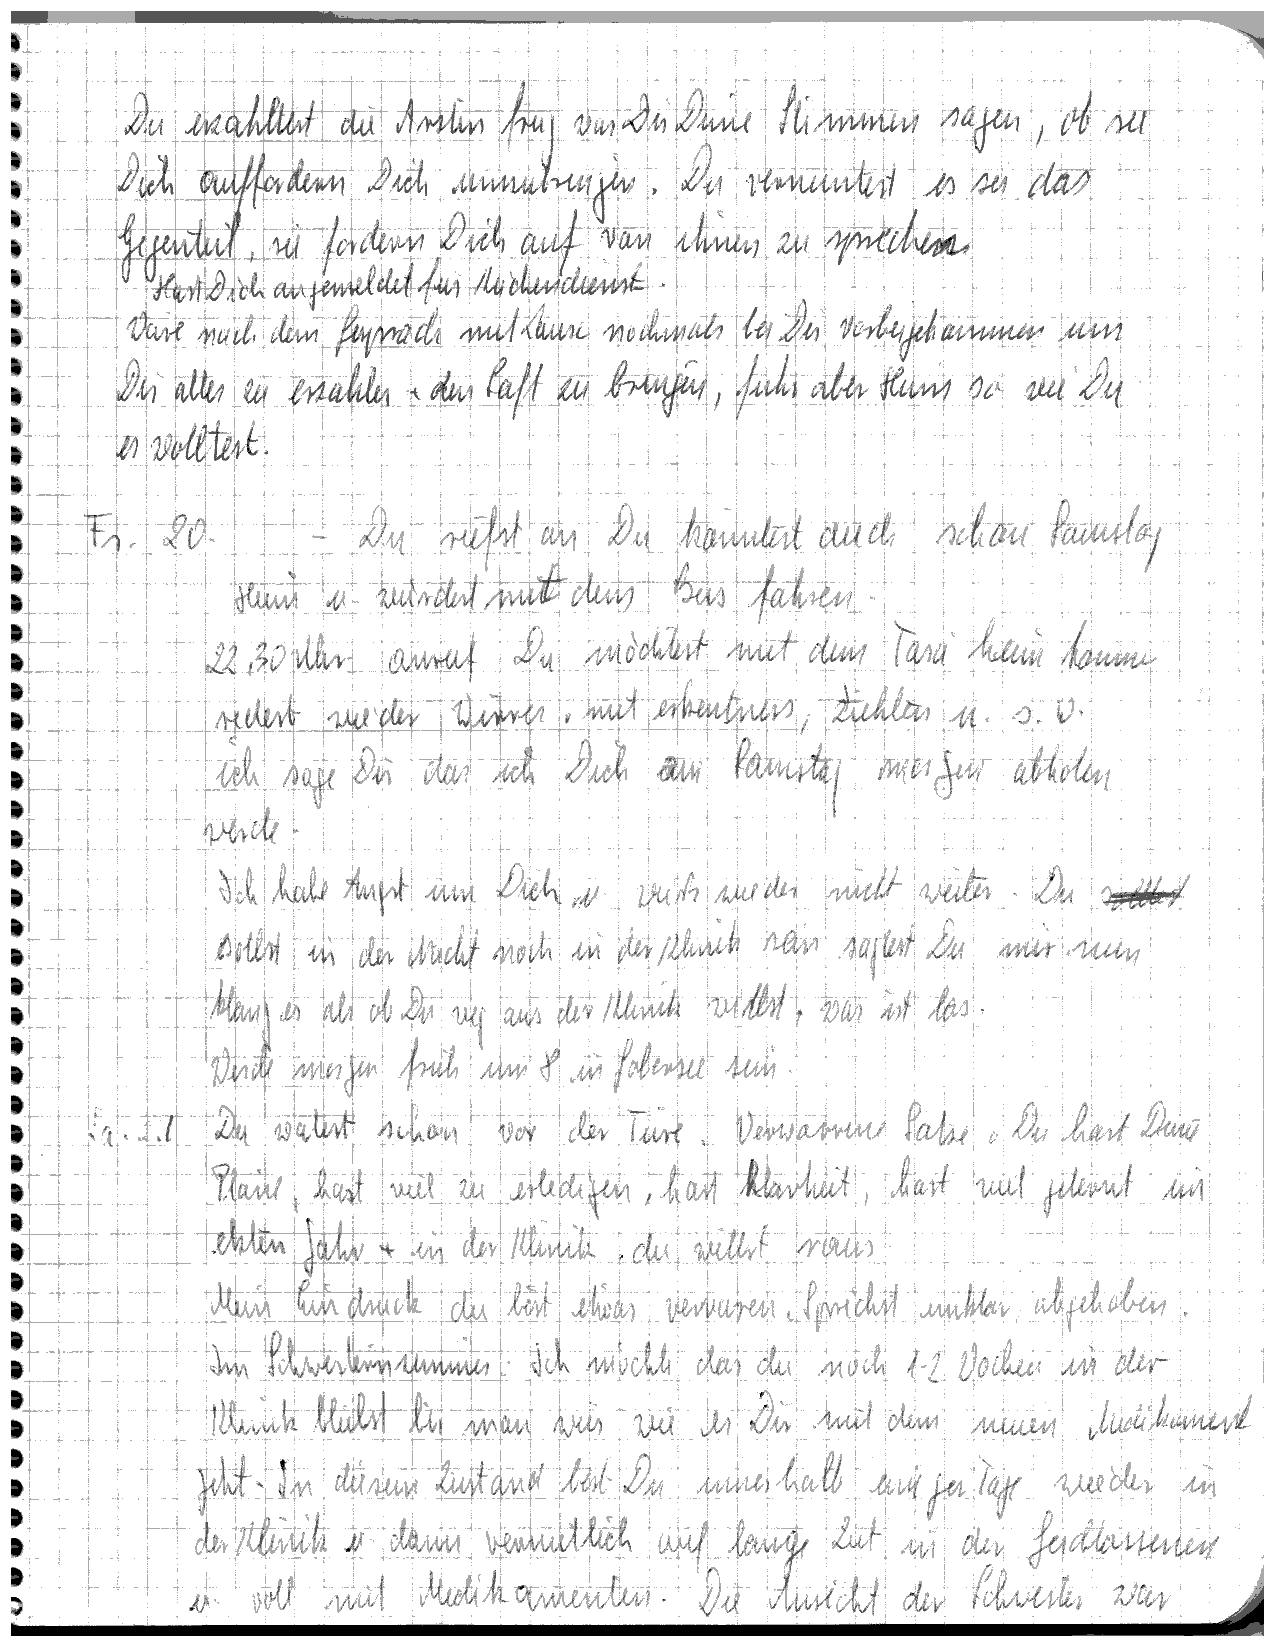 Du erzähltest die Ärztin frug was Dir Deine Stimmen sagen, ob sie
Dich auffordern Dich umzubringen. Du verneintest es sei das
Gegenteil, sie fordern Dich auf von ihnen zu sprechen.
Hast Dich angemeldet für Küchendienst.
Wäre nach dem Gespräch mit nochmals bei Dir vorbeigekommen um
Dir alles zu erzählen + den Saft zu bringen, fuhr aber Heim so wie Du
es wolltest.
Fr. 20. - Du rufst an Du könntest auch schon Samstag
Heim u. würdest mit dem Bus fahren.
22.30 Uhr anruf Du möchtest mit dem Taxi heim komme
redest wieder Wirres. mit erkentness, Ziehlen u. s. w.
ich sage Dir das ich Dich am Samstag morgen abholen
werde.
Ich habe Angst um Dich u weiss wieder nicht weiter. Du
sollst in der Nacht noch in der Klinik sein sagtest Du mir nun
klang es als ob Du weg aus der Klinik willst, was ist los.
Werde morgen früh um 8 in sein.
Sa. 21 Du watest schon vor der Türe. Verworrene Sätze. Du hast Deine
Pläne, hast viel zu erledigen, hast Klarheit, hast viel gelernt im
letzten Jahr + in der Klinik. du willst raus
Mein Eindruck du bist etwas verwiren. Sprichst unklar, abgehoben.
Im Schwesternzimmer. Ich möchte das du noch 1-2 Wochen in der
Klinik bleibst bis man weis wie es Dir mit dem neuen Medikament
geht. In diesem Zustand bist Du innerhalb einiger Tage wieder in
der Klinik u dann vermutlich auf lange Zeit in der Geschlossenen
u. voll mit Medikamenten. Die Ansicht der Schwester war